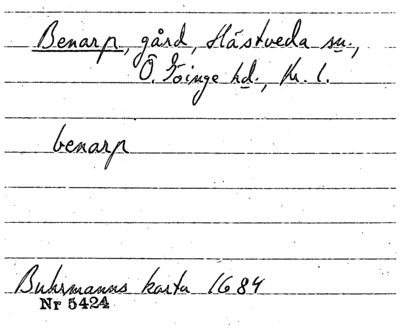 Benarp, gård, Hästveda sn.,
Ö. Göinge hd., Kr. l.
benarp
Buhrmanns karta 1684
Nr 5424